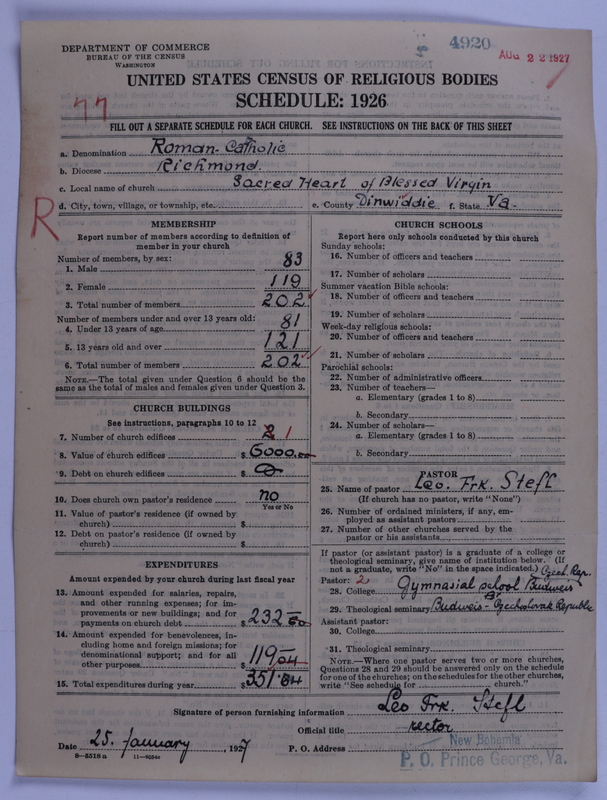 4920
AUG 22 1927
DEPARTMENT OF COMMERCE
BUREAU OF THE CENSUS
WASHINGTON
UNITED STATES CENSUS OF RELIGIOUS BODIES
SCHEDULE: 1926
77
FILL OUT A SEPARATE SCHEDULE FOR EACH CHURCH. SEE INSTRUCTIONS ON THE BACK OF THIS SHEET
a. Denomination Roman-Catholic
b. Diocese Richmond.
c. Local name of church Sacred Heart of Blessed Virgin
R
d. City, town, village, or township, etc. e. County Dinwiddie f. State Va.
MEMBERSHIP
Report number of members according to definition of member in your church
Number of members, by sex:
1. Male 83
2. Female 119
3. Total number of members 202
Number of members under and over 13 years old:
4. Under 13 years of age 81
5. 13 years old and over 121
6. Total number of members 202
NOTE.—The total given under Question 6 should be the
same as the total of males and females given under Question 3.
CHURCH BUILDINGS
See instructions, paragraphs 10 to 12
7. Number of church edifices 2 1
8. Value of church edifices $ 6000.00
9. Debt on church edifices $ 0
10. Does church own pastor's residence no
Yes or No
11. Value of pastor's residence (if owned by
church) $
12. Debt on pastor's residence (if owned by
church) $
EXPENDITURES
Amount expended by your church during last fiscal year
13. Amount expended for salaries, repairs,
and other running expenses; for im-
provements or new buildings; and for
payments on church debt $ 232.60
14. Amount expended for benevolences, in-
cluding home and foreign missions; for
denominational support; and for all
other purposes 119.04
15. Total expenditures during year $ 351.64
CHURCH SCHOOLS
Report here only schools conducted by this church
Sunday schools:
16. Number of officers and teachers
17. Number of scholars
Summer vacation Bible schools:
18. Number of officers and teachers
19. Number of scholars
Week-day religious schools:
20. Number of officers and teachers
21. Number of scholars
Parochial schools:
22. Number of administrative officers
23. Number of teachers—
a. Elementary (grades 1 to 8)
b. Secondary
24. Number of scholars—
a. Elementary (grades 1 to 8)
b. Secondary
PASTOR
25. Name of pastor Leo. Frk. Stefl
(If church has no pastor, write "None")
26. Number of ordained ministers, if any, em-
ployed as assistant pastors
27. Number of other churches served by the
pastor or his assistants
If pastor (or assistant pastor) is a graduate of a college or
theological seminary, give name of institution below. (If
not a graduate, write "No" in the space indicated.)
Pastor: 2 Czech. Rep.
28. College Gymnasial school Budweis
29. Theological seminary Budweis - Czechoslovak Republic
Assistant pastor:
30. College
31. Theological seminary
NOTE.—Where one pastor serves two or more churches,
Questions 28 and 29 should be answered only on the schedule
for one of the churches; on the schedules for the other churches,
write "See schedule for church."
Signature of person furnishing information Leo Frk. Stefl
Official title rector
Date 25. January, 1927 P. O. Address New Bohemia
P. O. Prince George, Va.
8—5518a 11—9054c